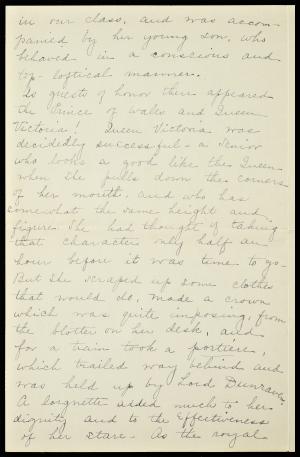 in our class, and was accom-
panied by her young son, who
behaved in a conscious and
top-loftical manner.
As guests of honor there appeared
the Prince of Wales and Queen
Victoria! Queen Victoria was
decidedly successful - a Senior
who looks a good like the Queen
when she pulls down the corners
of her mouth, and who has
somewhat the same height and
figure. She had thought of taking
that character only half an
hour before it was time to go.
But she scraped up some clothes
that would do, made a crown
which was quite imposing, from
the blotter on her desk, and
for a train took a portière,
which trailed way behind and
was held up by Lord Dunraven.
A lorgnette added much to her
dignity and to the effectiveness
of her stare. As the royal